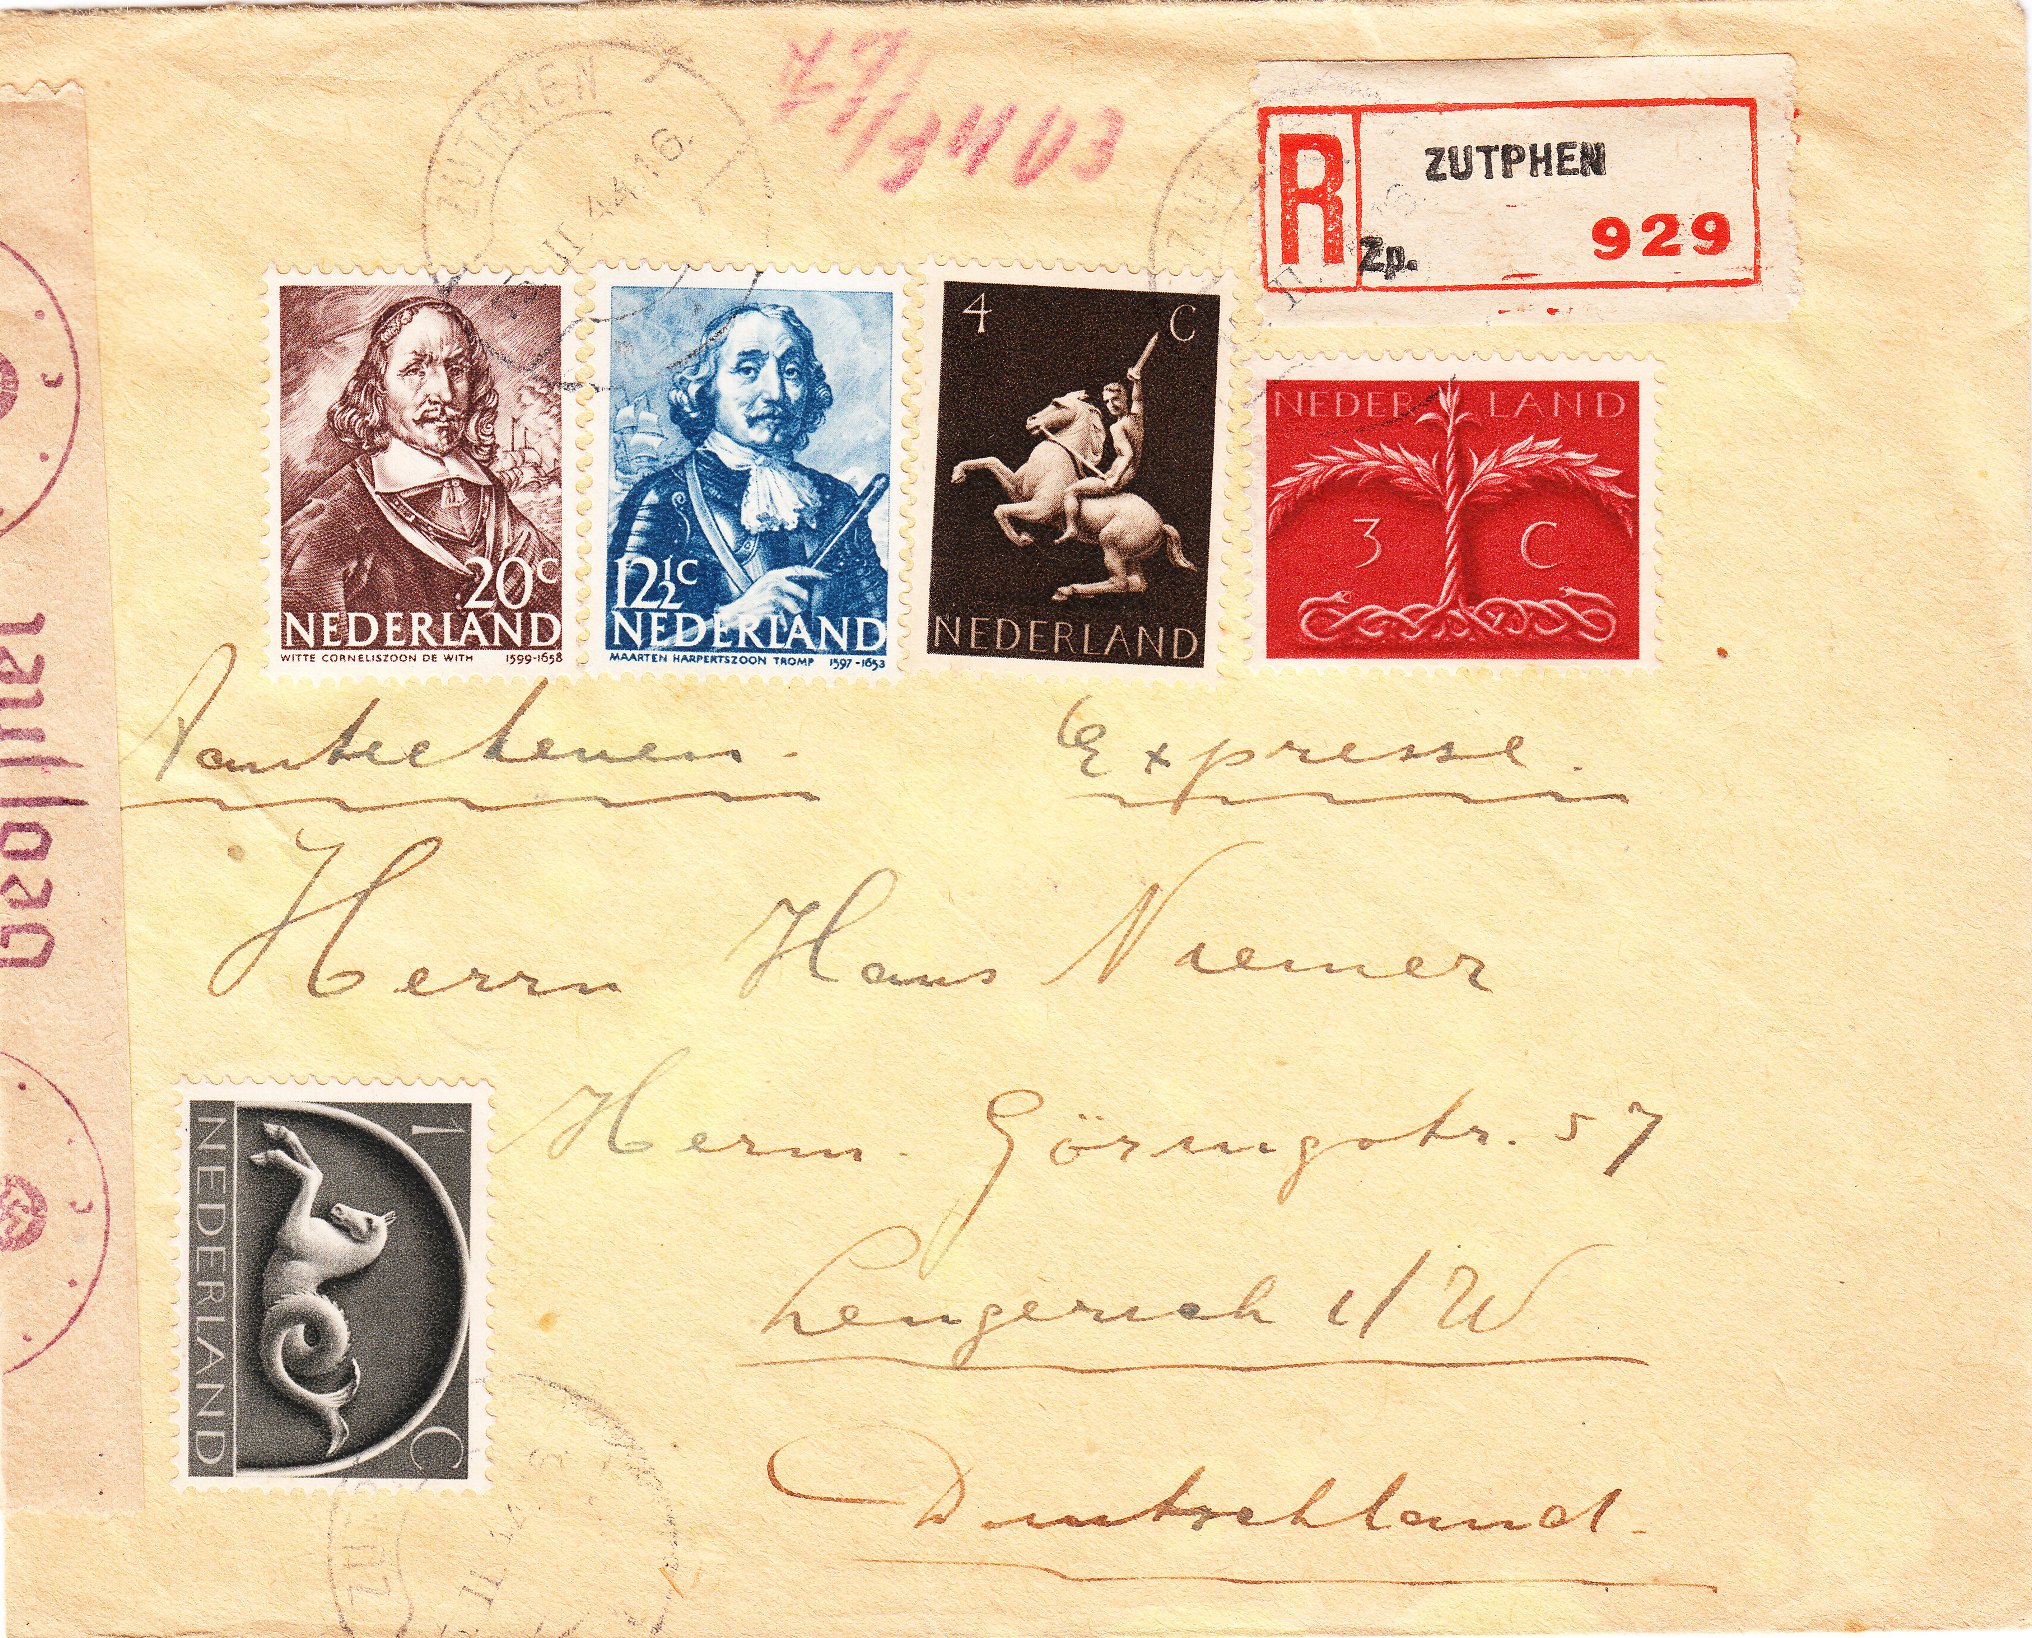 ZUTPHEN
44.16.
ZUTPHEN
R
Zp.
929
20c
NEDERLAND
WITTE CORNELISZOON DE WITH 1599-1658
12½c
NEDERLAND
MAARTEN HARPERTSZOON TROMP 1597-1653
4 C
NEDERLAND
NEDERLAND
3 C
Aanteekenen. Expresse.
Herrn Hans Niemer
Herm. Göringstr. 57
Lengerich i/W
Deutschland.
1 C
NEDERLAND
Geöffnet
c
c